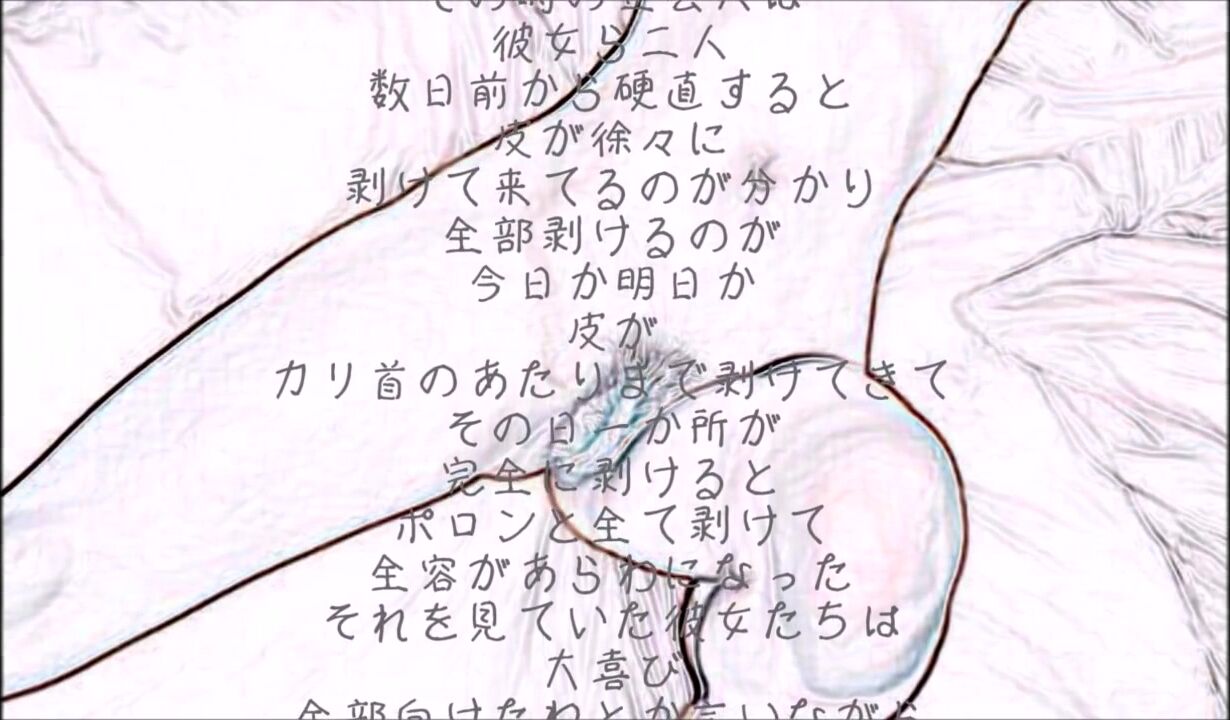 彼女ら二人
数日前から硬直すると
皮が徐々に
剥けて来てるのが分かり
全部剥けるのが
今日か明日か
皮が
カリ首のあたりまで剥けてきて
その日一か所が
完全に剥けると
ポロンと全て剥けて
全容があらわになった
それを見ていた彼女たちは
大喜び